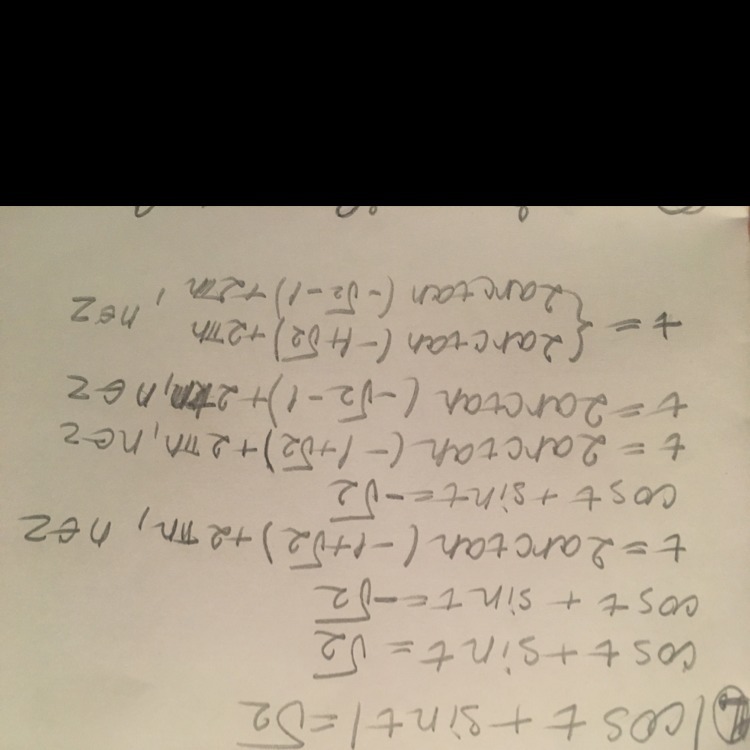 |cos t + sin t| = √2
cos t + sin t = √2
cos t + sin t = -√2
t = 2arctan(-1+√2)+2πn, n∈Z
cos t + sin t = -√2
t = 2arctan(-1+√2)+2πn, n∈Z
t = 2arctan(-√2-1)+2πn, n∈Z
t = { 2arctan(-1+√2)+2πn
2arctan(-√2-1)+2πn , n∈Z